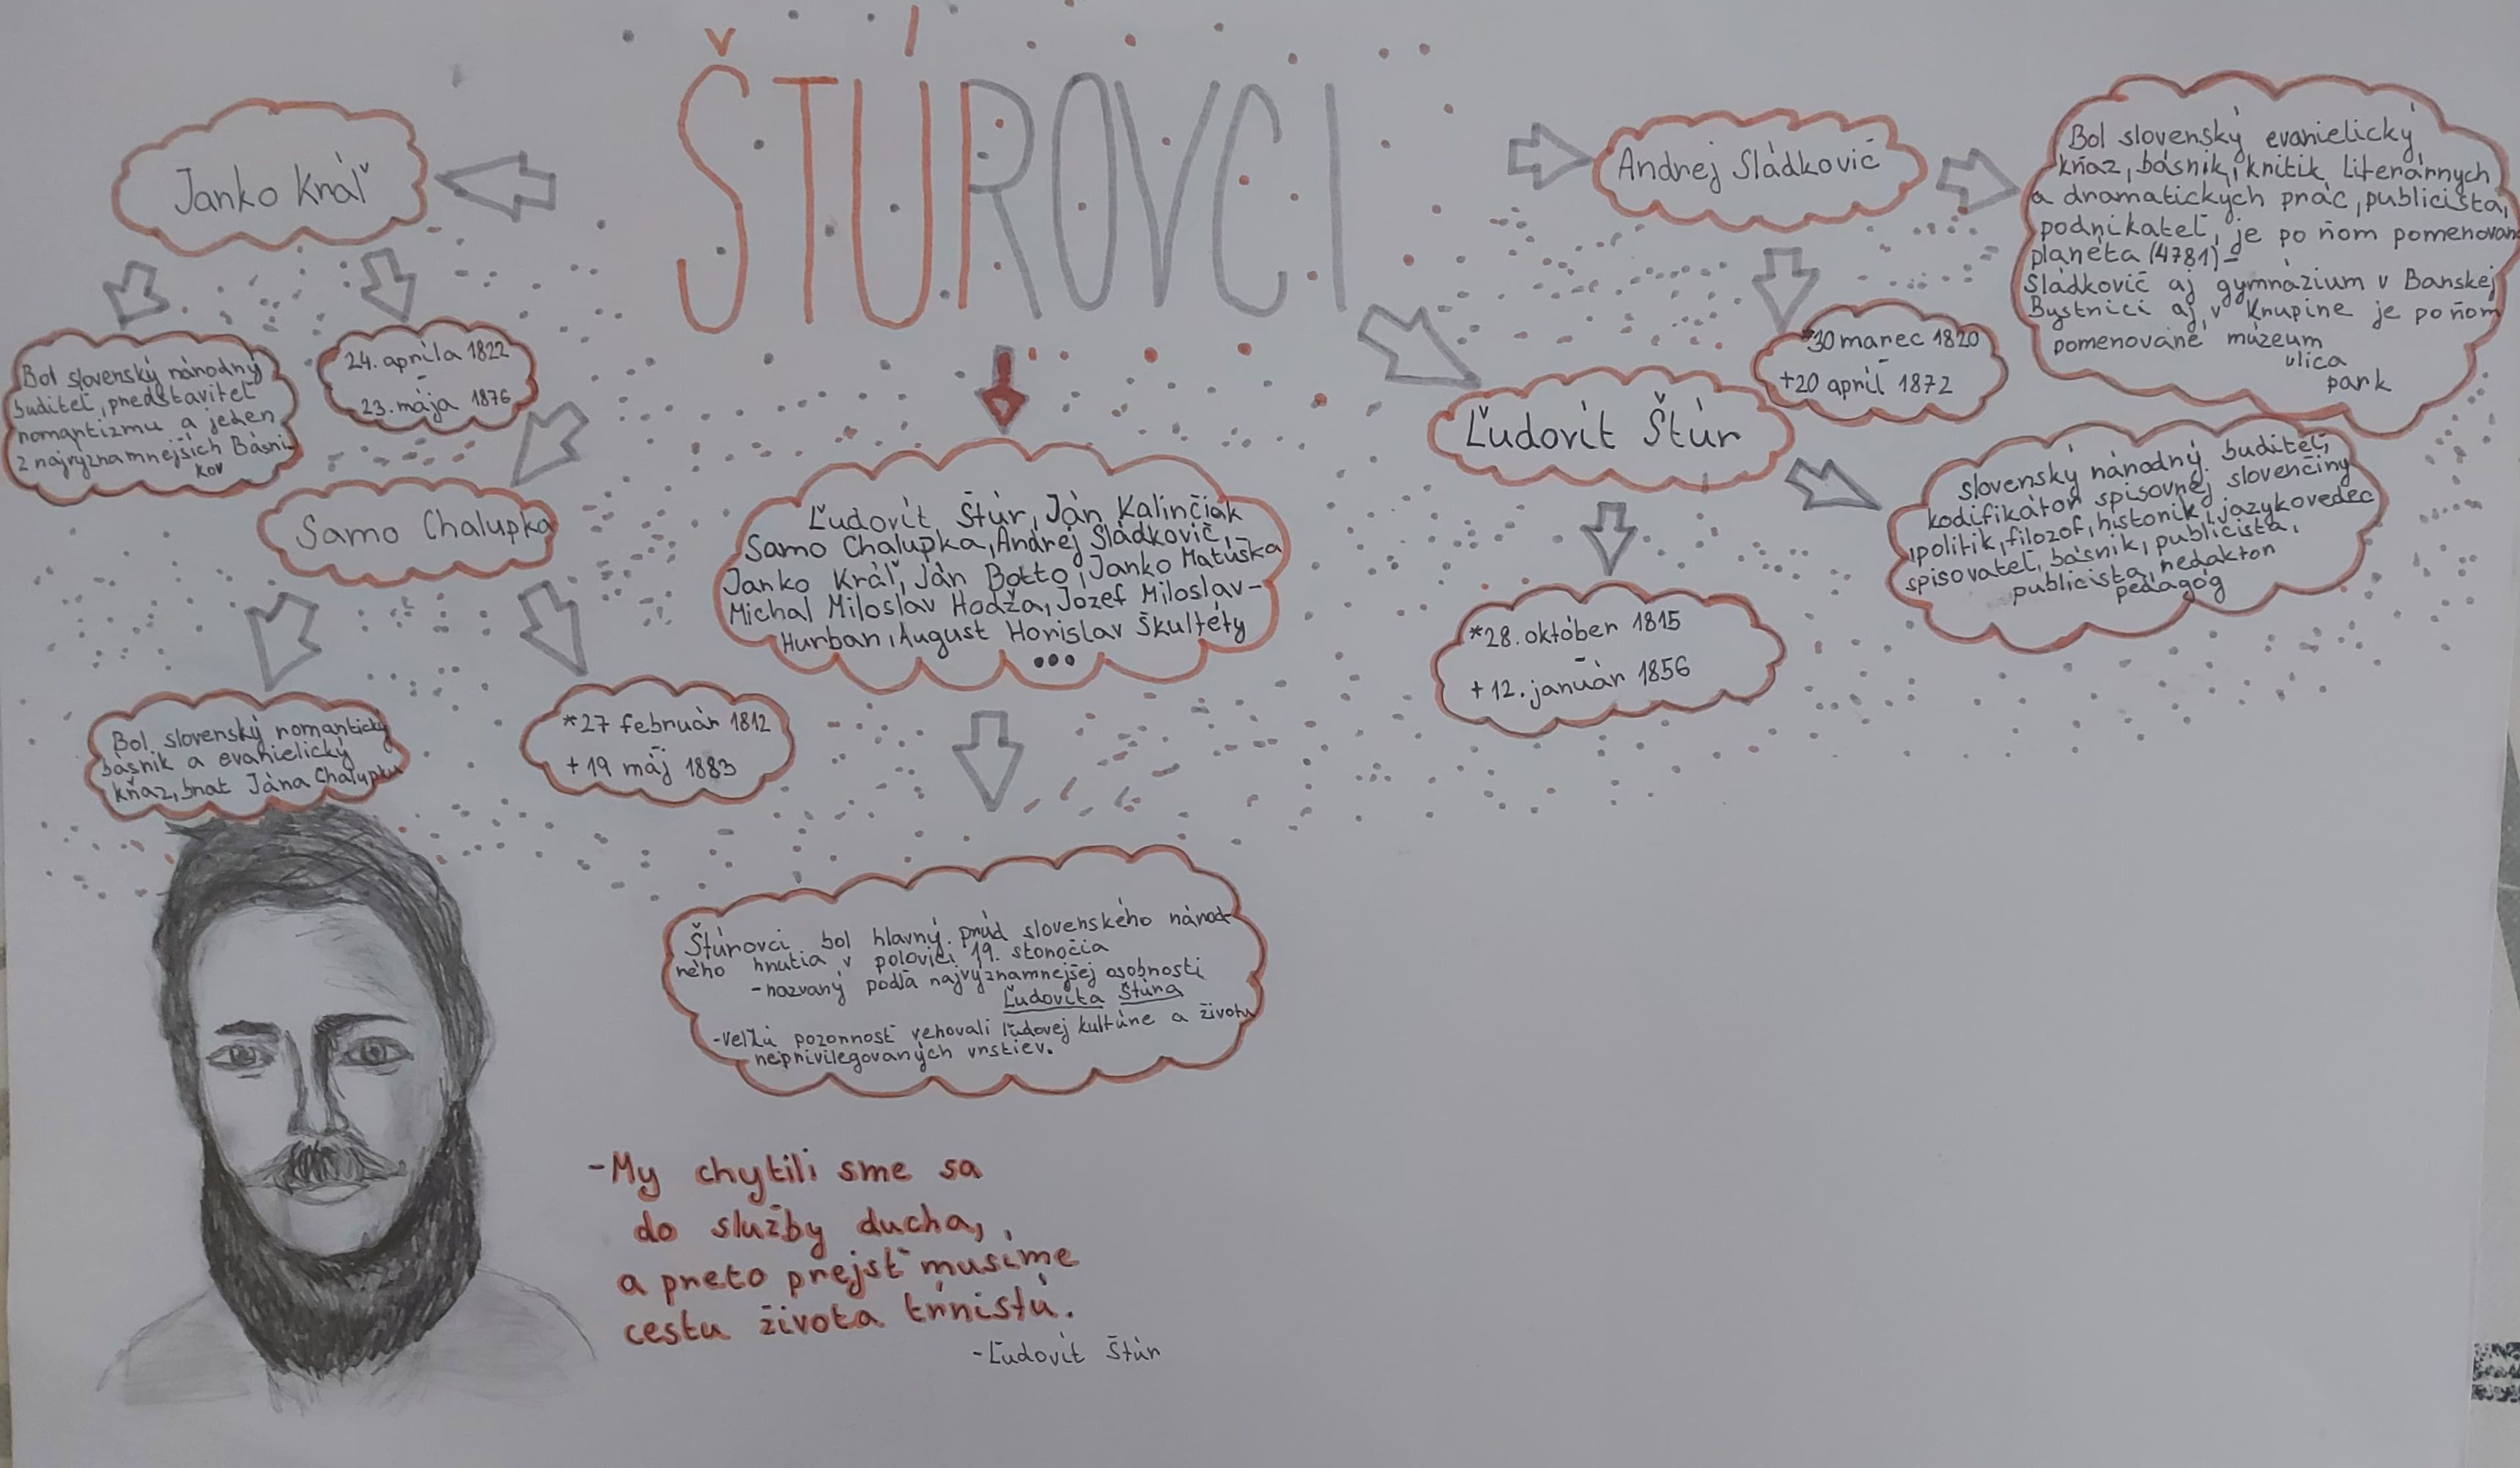 ŠTÚROVCI
Janko Kráľ
Bol slovenský národný
buditeľ, predstaviteľ
romantizmu a jeden
z najvýznamnejších Básni
kov
24. apríla 1822
-
23. mája 1876
Samo Chalupka
Bol slovenský romantický
básnik a evanielický
kňaz, brat Jána Chalupku
*27 február 1812
-
+19 máj 1883
Ľudovít Štúr, Ján Kalinčiak
Samo Chalupka, Andrej Sládkovič,
Janko Kráľ, Ján Botto, Janko Matúška
Michal Miloslav Hodža, Jozef Miloslav-
Hurban, August Horislav Škultéty
...
Štúrovci bol hlavný prúd slovenského národ-
ného hnutia v polovici 19. storočia
-nazvaný podľa najvýznamnejšej osobnosti
Ľudovíta Štúra
-veľkú pozornosť venovali ľudovej kultúre a životu
neprivilegovaných vrstiev.
-My chytili sme sa
do služby ducha,
a preto prejsť musíme
cestu života tŕnistú.
-Ľudovít Štúr
Andrej Sládkovič
*30 marec 1820
-
+20 apríl 1872
Bol slovenský evanielický
kňaz, básnik, kritik literárnych
a dramatických prác, publicista,
podnikateľ, je po ňom pomenovan
planéta (4781)-
Sládkovič aj gymnázium v Banskej
Bystrici aj v Krupine je po ňom
pomenované múzeum
ulica
park
Ľudovít Štúr
*28. október 1815
-
+12. január 1856
slovenský národný buditeľ,
kodifikátor spisovnej slovenčiny
politik, filozof, historik, jazykovedec
spisovateľ, básnik, publicista,
publicista, redaktor
pedagóg